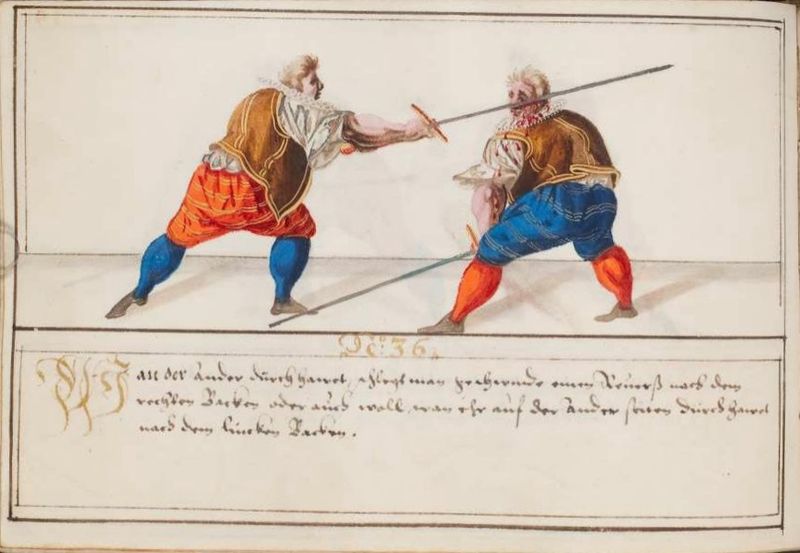 No: 36.
Wan der Ander durch hawet, schlegt man geschwinde einen Reuerß nach dem
rechten Backen oder auch woll, wan ehr auf der Ander seiten durch hawet
nach dem lincken Backen.